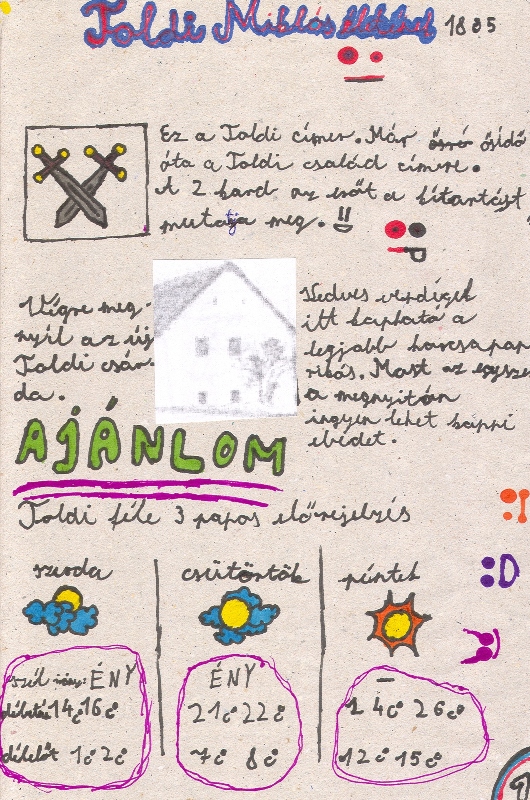 Toldi Miklós életéhez 1885
Ez a Toldi címer. Már ősidő
óta a Toldi család címere.
A 2 kard az erőt a kitartást
mutatja meg.
Végre meg-
nyíl az új
Toldi csár-
da.
Kedves vendégek
itt kapható a
legjobb harcsapap
rikás. Most az egyszer
a megnyitón
ingyen lehet kapni
ebédet.
AJÁNLOM
Toldi féle 3 napos előrejelzés
szerda csütörtök péntek
szél ÉNY ÉNY –
délután 14c° 16c° 21c° 22c° 24c° 26c°
délelőt 1c° 2c° 7c° 8c° 12c° 15c°